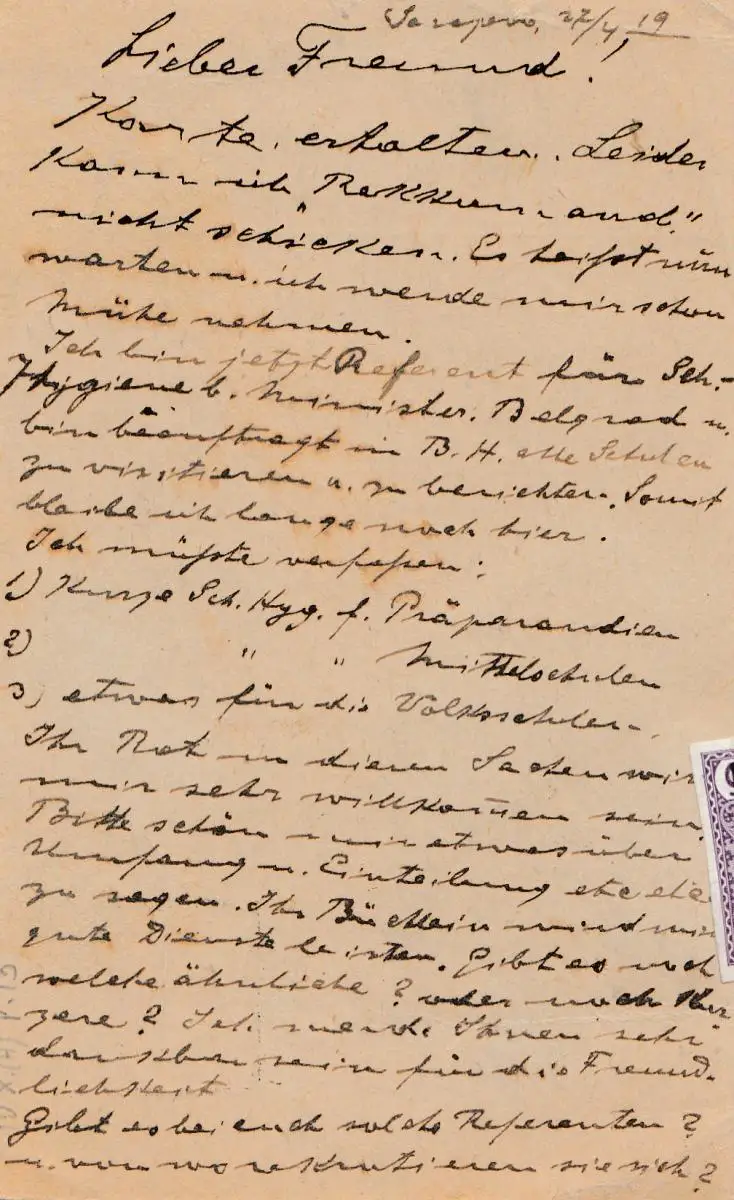 Sarajevo, 27/4 19
Lieber Freund!
Karte erhalten. Leider
kann ich "Rekkum-and."
nicht schicken. Es heißt nun
warten u. ich werde mir schon
Mühe nehmen.
Ich bin jetzt Referent für Sch.-
Hygiene b. Minister. Belgrad u.
bin beauftragt in B. H. alle Schulen
zu visitieren u. zu berichten. Somit
bleibe ich lange noch hier.
Ich müßte verfaßen:
1) Kurze Sch. Hyg. f. Präparandien
2) " " Mittelschulen
3) etwas für die Volksschulen.
Ihr Rat in diesen Sachen wird
mir sehr willkom̄en sein.
Bitte schön mir etwas über
Umfang u. Einteilung etc etc
zu sagen. Ihr Büchlein wird mir
gute Dienste leisten. Gibt es noch
welche ähnliche? oder noch kür-
zere? Ich werde Ihnen sehr
dankbar sein für die Freund-
lichkeit
Gibt es bei euch solche Referenten?
u. von wo rekrutieren sie sich?